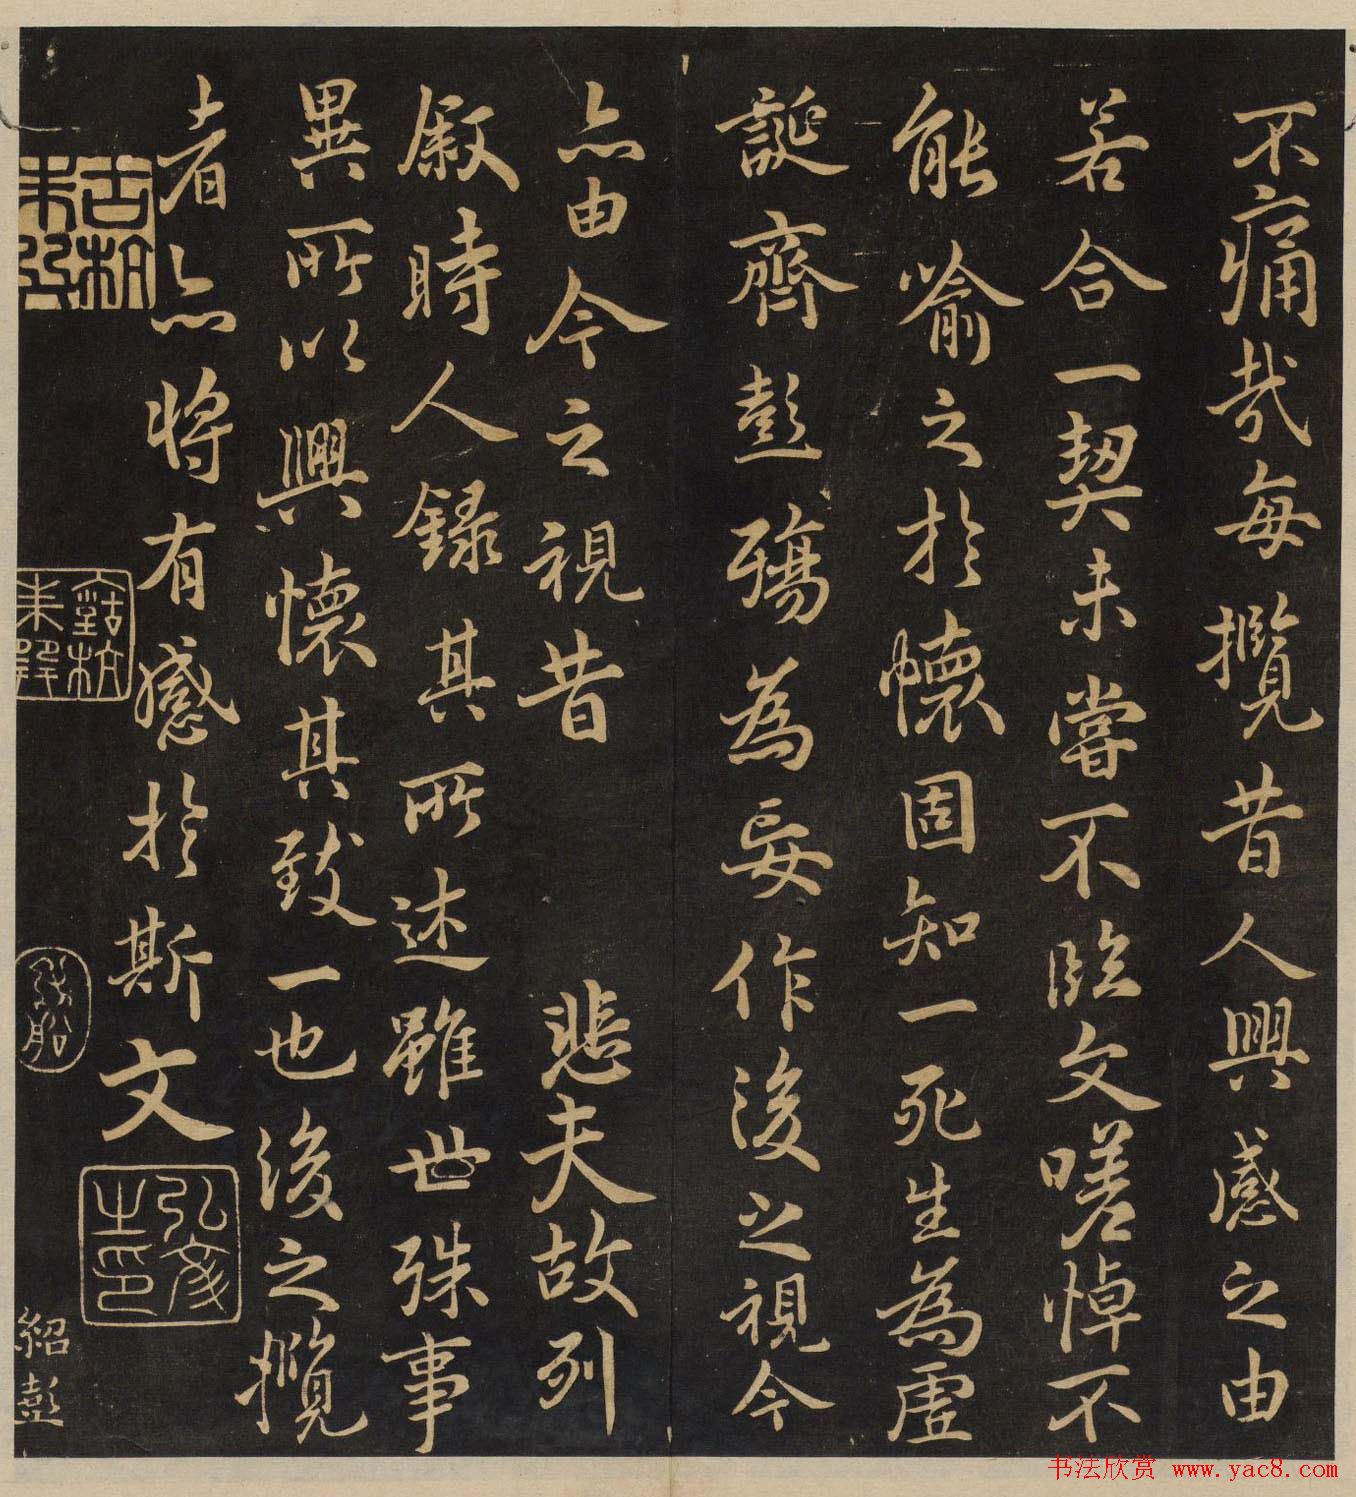 不痛哉每攬昔人興感之由
若合一契未嘗不臨文嗟悼不
能喻之於懷固知一死生為虛
誕齊彭殤為妄作後之視今
亦由今之視昔 悲夫故列
叙時人錄其所述雖世殊事
異所以興懷其致一也後之攬
者亦將有感於斯文
弘彦之印
紹彭
书法欣赏 www.yac8.com